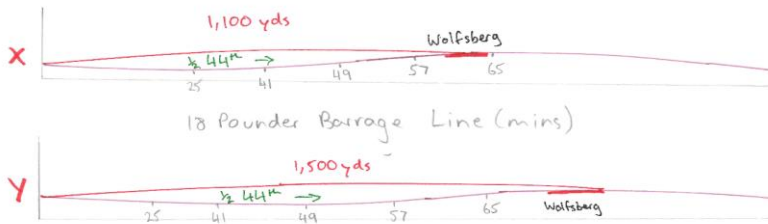 1,100 yds
Wolfsberg
X
½ 44th →
25 41 49 57 65
18 Pounder Barrage Line (mins)
1,500 yds
Y
½ 44th →
25 41 49 57 65
Wolfsberg